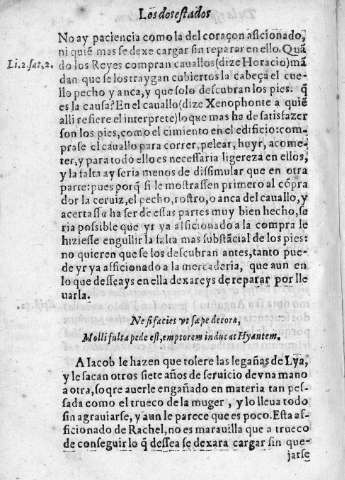 Los dos estados
No ay paciencia como la del coraçon aficionado,
ni quiẽ mas se dexe cargar sin reparar en ello. Quã
Li. 2. sat. 2. do los Reyes compran cauallos (dize Horacio) mã
dan que se los traygan cubiertos la cabeça el cue-
llo pecho y anca, y que solo descubran los pies: q̃
es la causa? En el cauallo (dize Xenophonte a quiẽ
alli refiere el interprete) lo que mas ha de satisfazer
son los pies, como el cimiento en el edificio: com-
prase el cauallo para correr, pelear, huyr, acome-
ter, y para todo ello es necessaria ligereza en ellos,
y la falta ay seria menos de dissimular que en otra
parte: pues porq̃ si le mostrassen primero al cõpra
dor la ceruiz, el pecho, rostro, o anca del cauallo, y
acertasse a ser de estas partes muy bien hecho, se
ria possible que yr ya aficionado a la compra le
hiziesse engullir la falta mas substãcial de los pies:
no quieren que se los descubran antes, tanto pue-
de yr ya aficionado a la mercaderia, que aun en
lo que desseays en ella dexareys de reparar por lle
uarla.
Ne si facies vt sæpe decora,
Molli fulta pede est, emptorem inducat Hyantem.
A Iacob le hazen que tolere las legañas de Lya,
y le sacan otros siete años de seruicio de vna mano
a otra, sobre auerle engañado en materia tan pes-
sada como el trueco de la muger, y lo lleua todo
sin agrauiarse, y aun le parece que es poco. Esta afi-
cionado de Rachel, no es marauilla que a trueco
de conseguir lo q̃ dessea se dexara cargar sin que-
jarse